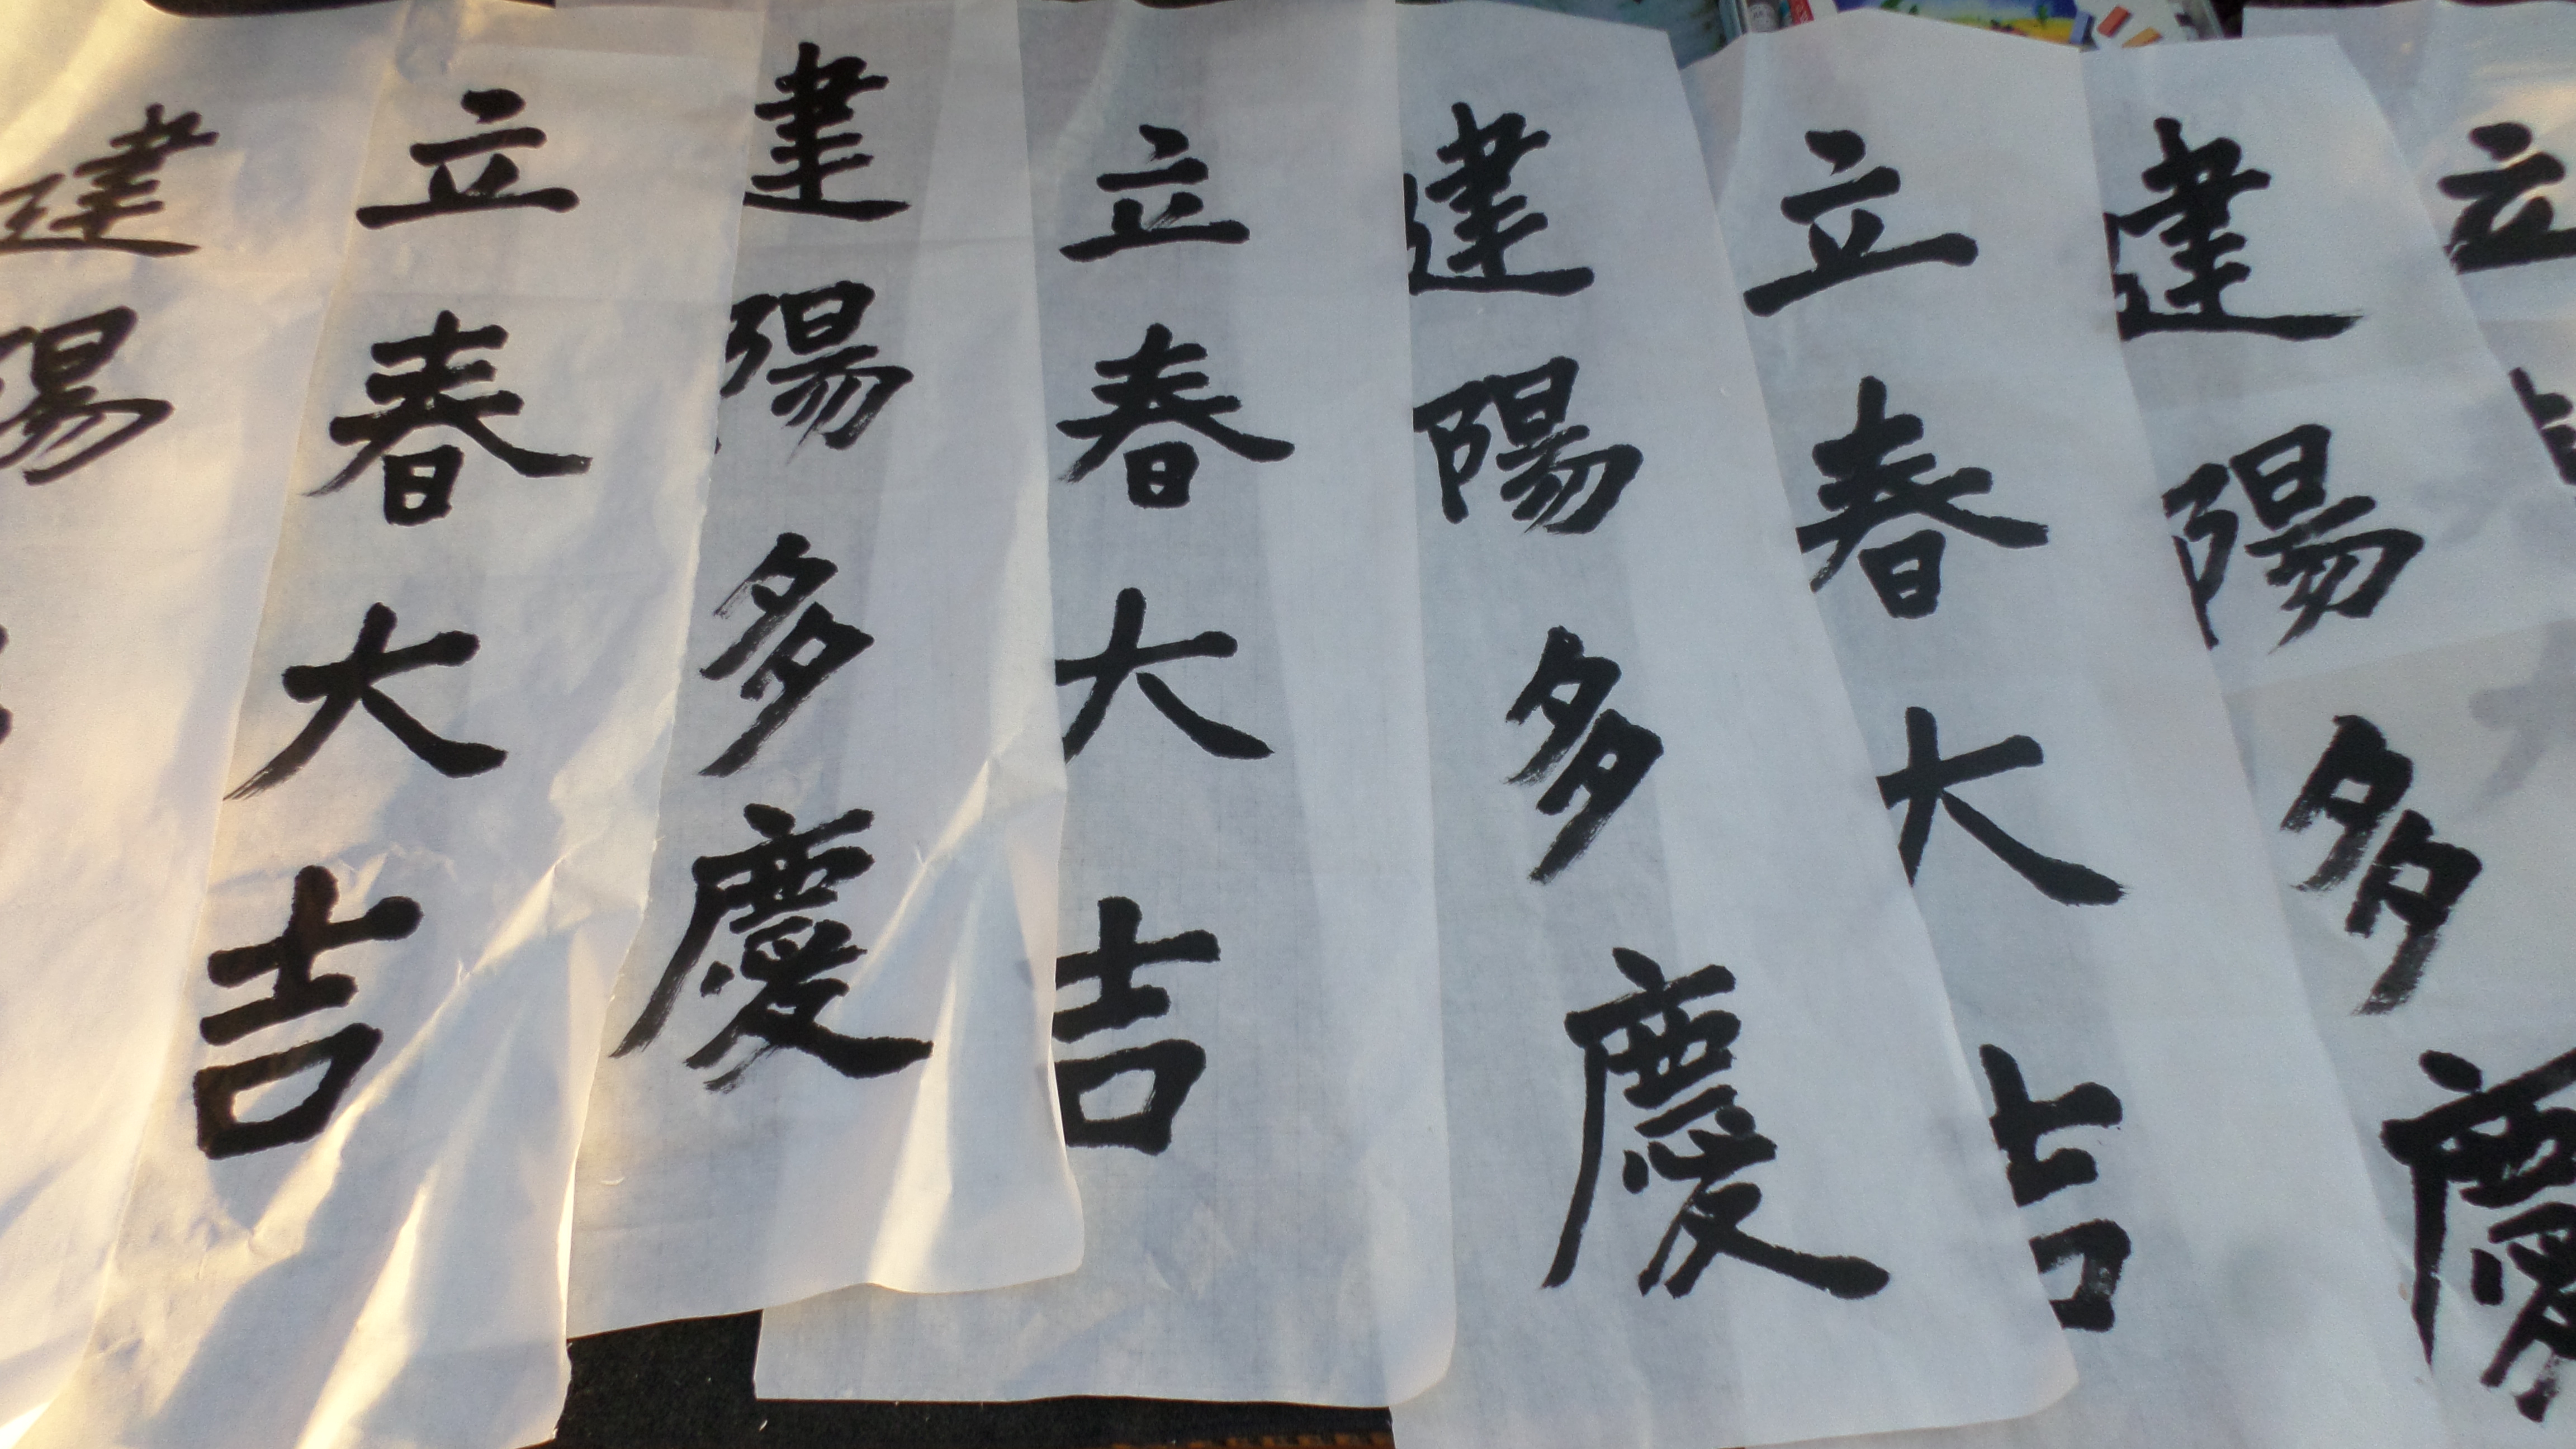 立
建陽多慶
立春大吉
建陽多慶
立春大吉
建陽多慶
立春大吉
建陽